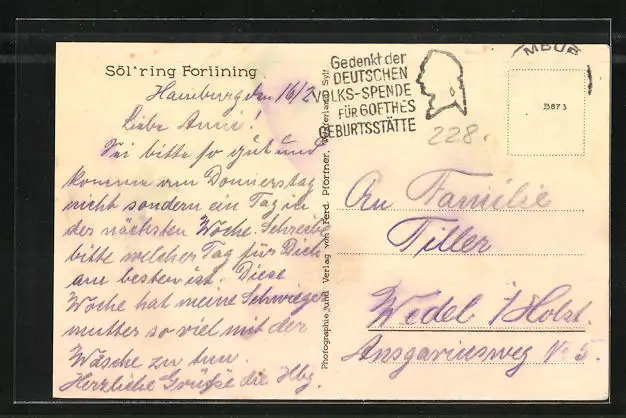 Söl'ring Foriining
Hamburg, den 16/2
Liebe Anni!
Sei bitte so gut und
komme am Donnerstag
nicht sondern ein Tag in
der nächsten Woche. Schreibe
bitte welcher Tag für Dich
am besten ist. Diese
Woche hat meine Schwieger
mutter so viel mit der
Wäsche zu tun.
Herzliche Grüße die Hbg.
Photographie und Verlag von Ferd. Pförtner, Westerland Sylt
Gedenkt der
DEUTSCHEN
VOLKS-SPENDE
FÜR GOETHES
GEBURTSSTÄTTE
MBUR
228.
An Familie
Tiller
Wedel i/Holst.
Ansgariusweg No 5.